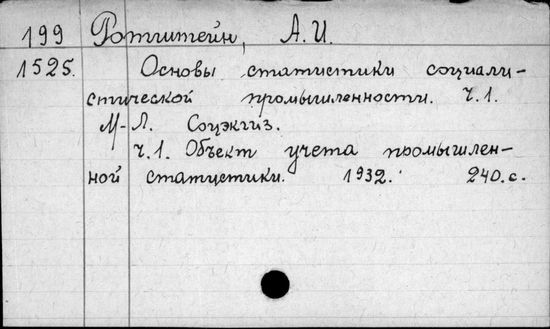 199 Ротштейн, А.И.
1525. Основы статистики социали-
стической промышленности. Ч.1.
М-Л. Соцэкгиз.
Ч.1. Объект учета промышлен-
ной статистики. 1932. 240.с.